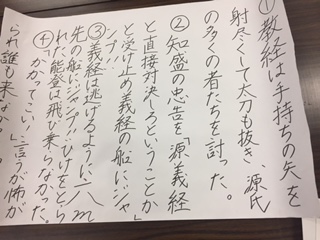 ①教経は手持ちの矢を
射尽くして太刀も抜き、源氏
の多くの者たちを討った。
②知盛の忠告を「源義経
と直接対決しろということか」
と受け止め義経の船にジャ
ンプ!
③義経は逃げるように六m
先の船にジャンプ!!ひけをとら
れた能登は飛び乗らなかった。
④「かかってこい!」言うが怖が
られ誰も来なか